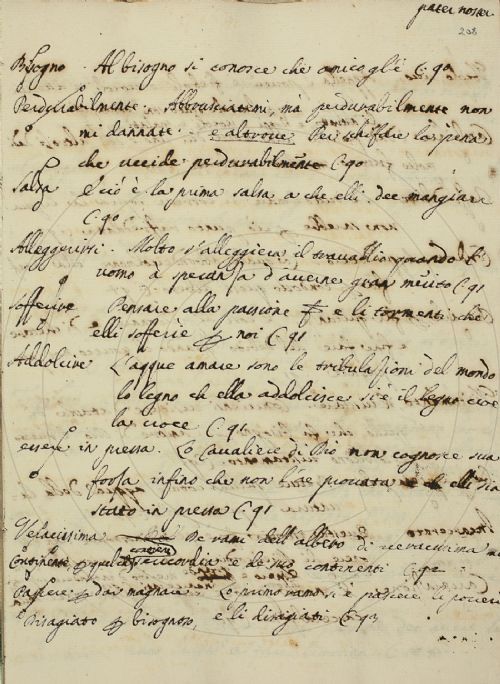 pater noster
208
Bisogno. Al bisogno si conosce chè amico gl'è C. 90
Perdurabilmente. Abbrusciatemi, mà perdurabilmente non
mi dannate. e altrove Per schifare la pena
che uccide perdurabilmẽte C. 90
Salza E' ciò è la prima salsa a che elli dee mangiare
C. 90
Alleggerirsi. Molto s'alleggiera il travaglio quando l'
uomo à speranza d'averne gran merito C. 91
sofferire Pensare alla passione e li tormenti che
elli sofferse noi C. 91
Addolcire L'acque amare sono le tribulazioni del mondo
lo legno ch ella addolcisce si è il legno cioè
la croce C. 91
essere in pressa. Lo Cavaliere di Dio non cognosce sua
forza infino che non l'ae provata elli sia
stato in pressa C. 91
Veracissima De rami dell'albero di veracissima
Continente e de suo continenti C. 92
Pascere dar mangiare Lo primo ramo si è pascere li poveri
Disagiato bisognoso, e li disagiati C. 93